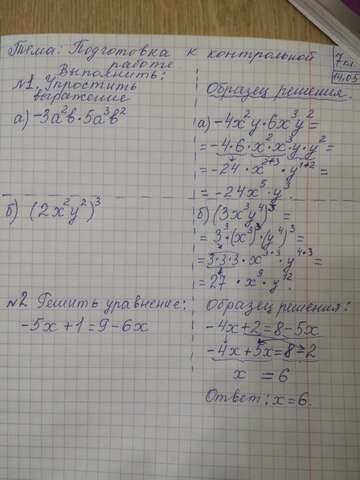 Тема: Подготовка к контрольной работе
7 кл
14.05
Выполнить:
№1. Упростить выражение
а) -3a²b · 5a³b²
Образец решения:
а) -4x²y · 6x³y² =
= -4 · 6 · x² · x³ · y · y² =
= -24 · x²⁺³ · y¹⁺² =
= -24x⁵ · y³.
б) (2x²y²)³
б) (3x³y⁴)³ =
= 3³ · (x³)³ · (y⁴)³ =
= 3·3·3 · x³·³ · y⁴·³ =
= 27 · x⁹ · y¹².
№2 Решить уравнение:
-5x + 1 = 9 - 6x
Образец решения:
-4x + 2 = 8 - 5x
-4x + 5x = 8 - 2
x = 6
Ответ: x = 6.